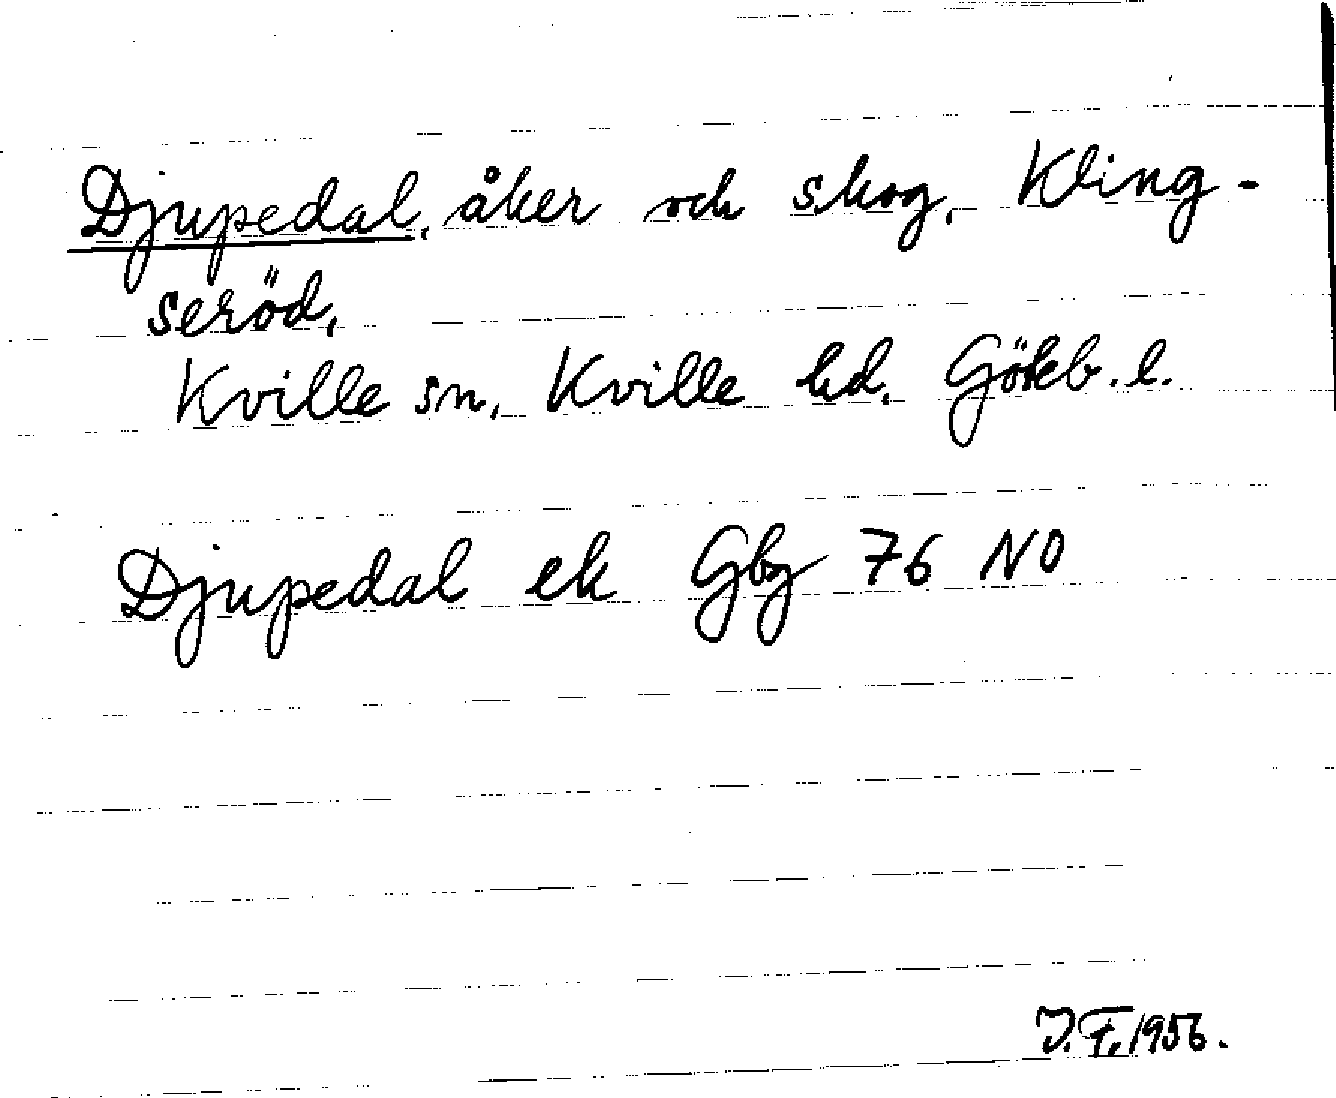 Djupedal, åker och skog, Kling-
seröd,
Kville sn, Kville hd, Göteb.l.
Djupedal ek Gbg 76 NO
J.F. 1956.